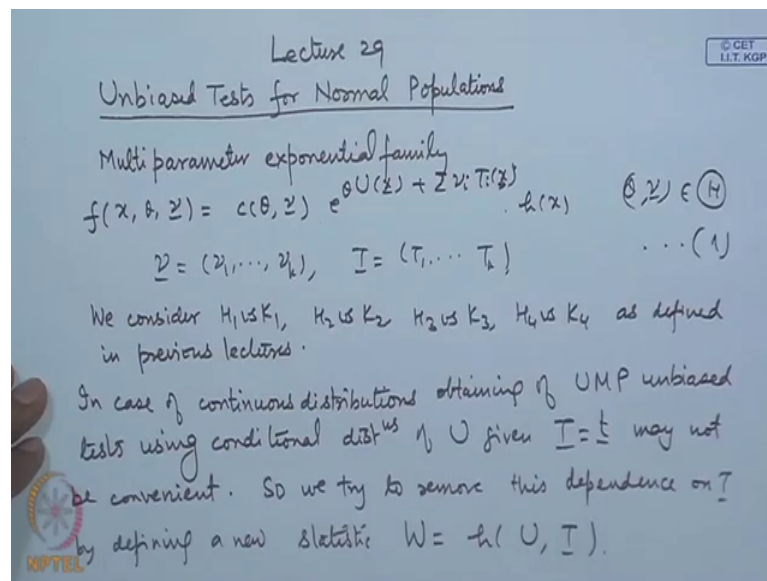 Lecture 29
© CET
I.I.T. KGP
Unbiased Tests for Normal Populations
Multiparameter exponential family
f(x, θ, ν) = c(θ, ν) e^{θU(x) + Σ νi Ti(x)} . h(x) (θ, ν) ∈ Ⓗ
ν = (ν1, ..., νk), T = (T1, ... Tk) ... (1)
We consider H1 vs K1, H2 vs K2 H3 vs K3, H4 vs K4 as defined
in previous lectures.
In case of continuous distributions obtaining of UMP unbiased
tests using conditional distns of U given T = t may not
be convenient. So we try to remove this dependence on T
by defining a new statistic W = h( U, T ).
NPTEL